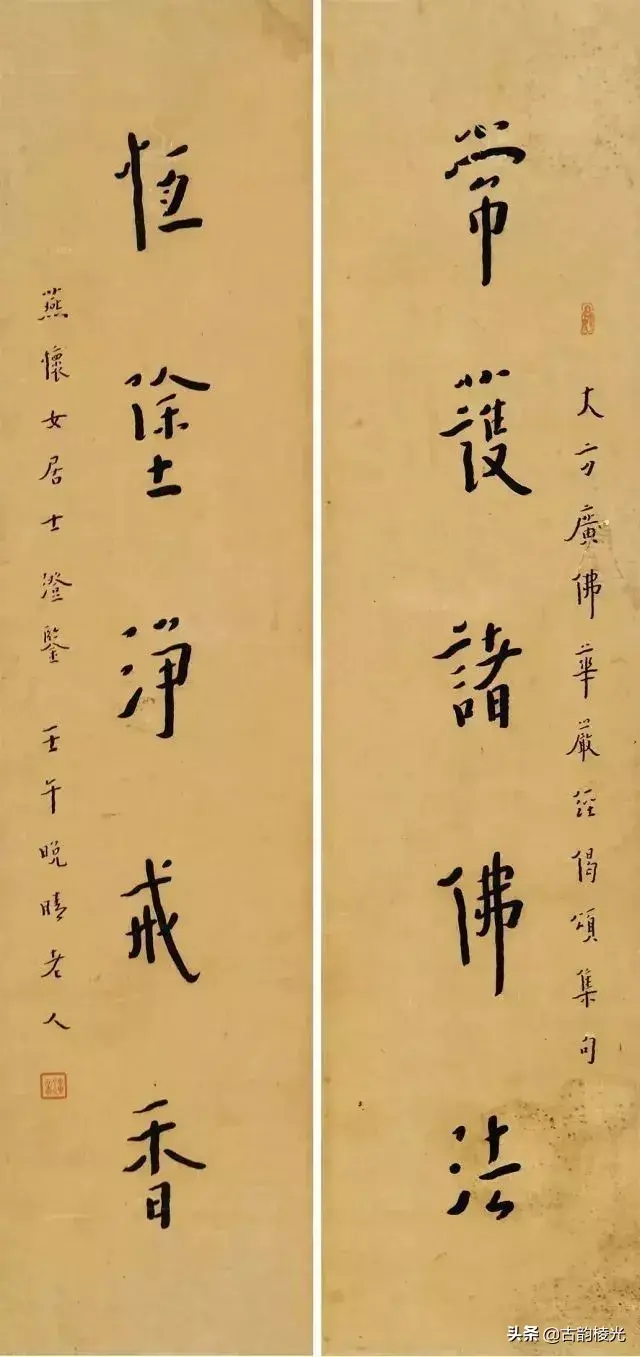 大方廣佛華嚴經偈頌集句
常護諸佛法
恆塗淨戒香
燕懷女居士澄鑒 壬午晚晴老人
头条 @古韵棱光